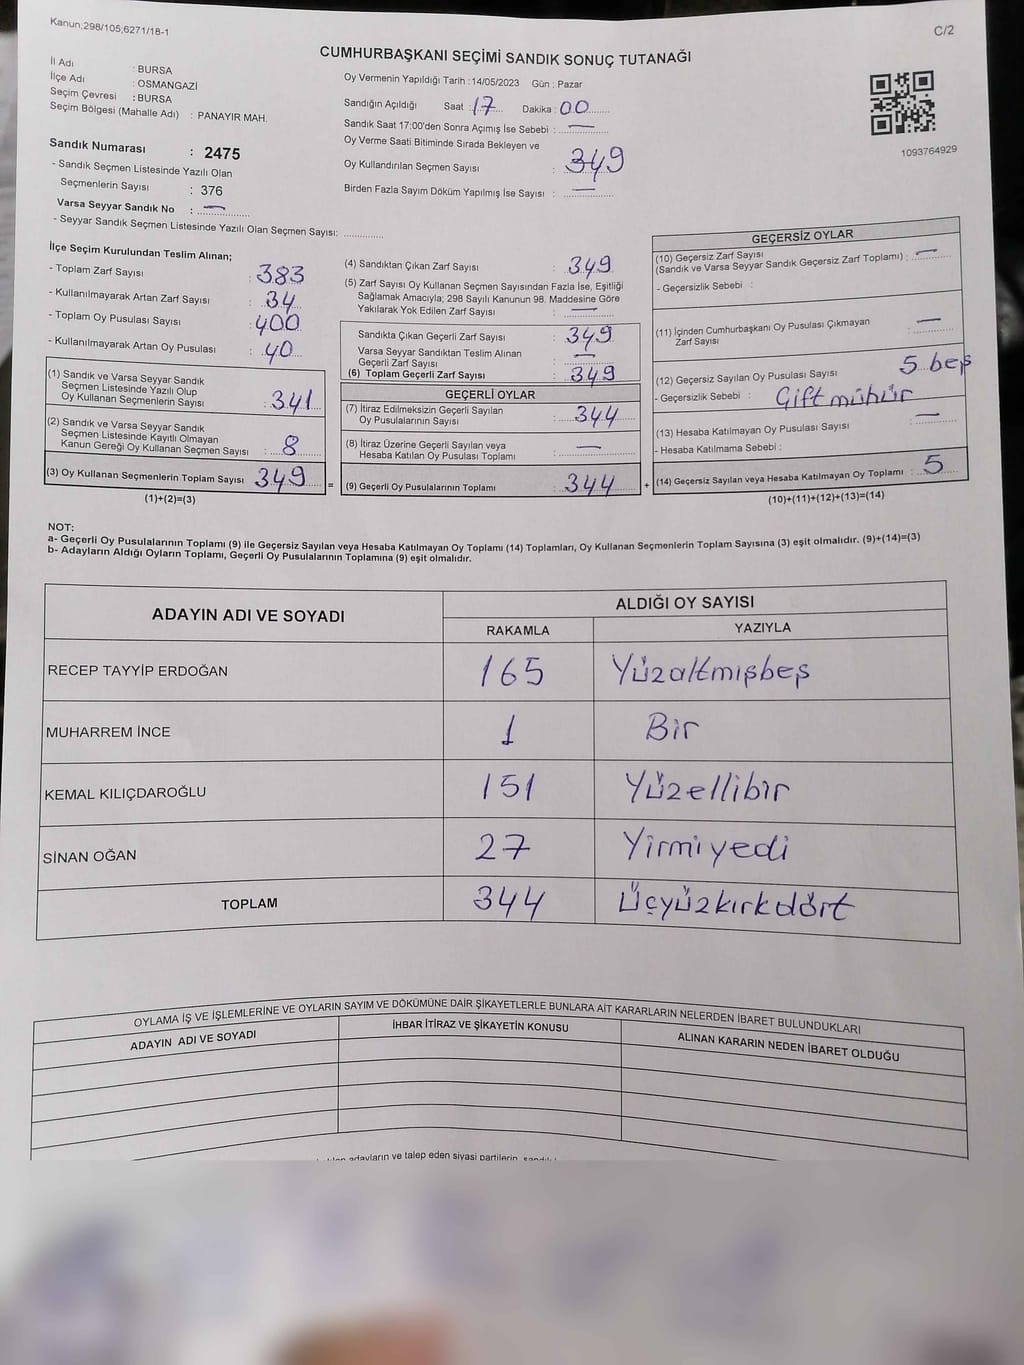 Kanun;298/105;6271/18-1
C/2
CUMHURBAŞKANI SEÇİMİ SANDIK SONUÇ TUTANAĞI
İl Adı : BURSA
İlçe Adı : OSMANGAZİ
Seçim Çevresi : BURSA
Seçim Bölgesi (Mahalle Adı) : PANAYIR MAH.
Sandık Numarası : 2475
- Sandık Seçmen Listesinde Yazılı Olan
Seçmenlerin Sayısı : 376
Varsa Seyyar Sandık No : —
- Seyyar Sandık Seçmen Listesinde Yazılı Olan Seçmen Sayısı: ..............
Oy Vermenin Yapıldığı Tarih :14/05/2023 Gün : Pazar
Sandığın Açıldığı Saat : 17 Dakika : 00
Sandık Saat 17:00'den Sonra Açımış İse Sebebi : —
Oy Verme Saati Bitiminde Sırada Bekleyen ve
Oy Kullandırılan Seçmen Sayısı : 349
Birden Fazla Sayım Döküm Yapılmış İse Sayısı : —
1093764929
İlçe Seçim Kurulundan Teslim Alınan;
- Toplam Zarf Sayısı : 383
- Kullanılmayarak Artan Zarf Sayısı : 34
- Toplam Oy Pusulası Sayısı : 400
- Kullanılmayarak Artan Oy Pusulası : 40
(1) Sandık ve Varsa Seyyar Sandık
Seçmen Listesinde Yazılı Olup
Oy Kullanan Seçmenlerin Sayısı : 341
(2) Sandık ve Varsa Seyyar Sandık
Seçmen Listesinde Kayıtlı Olmayan
Kanun Gereği Oy Kullanan Seçmen Sayısı : 8
(3) Oy Kullanan Seçmenlerin Toplam Sayısı 349
(1)+(2)=(3)
=
(4) Sandıktan Çıkan Zarf Sayısı : 349
(5) Zarf Sayısı Oy Kullanan Seçmen Sayısından Fazla İse, Eşitliği
Sağlamak Amacıyla; 298 Sayılı Kanunun 98. Maddesine Göre
Yakılarak Yok Edilen Zarf Sayısı : —
Sandıkta Çıkan Geçerli Zarf Sayısı : 349
Varsa Seyyar Sandıktan Teslim Alınan
Geçerli Zarf Sayısı : —
(6) Toplam Geçerli Zarf Sayısı : 349
GEÇERLİ OYLAR
(7) İtiraz Edilmeksizin Geçerli Sayılan
Oy Pusulalarının Sayısı : 344
(8) İtiraz Üzerine Geçerli Sayılan veya
Hesaba Katılan Oy Pusulası Toplamı : —
(9) Geçerli Oy Pusulalarının Toplamı : 344
+
GEÇERSİZ OYLAR
(10) Geçersiz Zarf Sayısı
(Sandık ve Varsa Seyyar Sandık Geçersiz Zarf Toplamı) : —
- Geçersizlik Sebebi :
(11) İçinden Cumhurbaşkanı Oy Pusulası Çıkmayan
Zarf Sayısı : —
(12) Geçersiz Sayılan Oy Pusulası Sayısı : 5 beş
- Geçersizlik Sebebi : Çift mühür
(13) Hesaba Katılmayan Oy Pusulası Sayısı : —
- Hesaba Katılmama Sebebi :
(14) Geçersiz Sayılan veya Hesaba Katılmayan Oy Toplamı : 5
(10)+(11)+(12)+(13)=(14)
NOT:
a- Geçerli Oy Pusulalarının Toplamı (9) ile Geçersiz Sayılan veya Hesaba Katılmayan Oy Toplamı (14) Toplamları, Oy Kullanan Seçmenlerin Toplam Sayısına (3) eşit olmalıdır. (9)+(14)=(3)
b- Adayların Aldığı Oyların Toplamı, Geçerli Oy Pusulalarının Toplamına (9) eşit olmalıdır.
ADAYIN ADI VE SOYADI
ALDIĞI OY SAYISI
RAKAMLA YAZIYLA
RECEP TAYYİP ERDOĞAN 165 Yüzaltmışbeş
MUHARREM İNCE 1 Bir
KEMAL KILIÇDAROĞLU 151 Yüzellibir
SİNAN OĞAN 27 Yirmiyedi
TOPLAM 344 Üçyüzkırkdört
OYLAMA İŞ VE İŞLEMLERİNE VE OYLARIN SAYIM VE DÖKÜMÜNE DAİR ŞİKAYETLERLE BUNLARA AİT KARARLARIN NELERDEN İBARET BULUNDUKLARI
ADAYIN ADI VE SOYADI İHBAR İTİRAZ VE ŞİKAYETİN KONUSU ALINAN KARARIN NEDEN İBARET OLDUĞU
adayların ve talep eden siyasi partilerin,